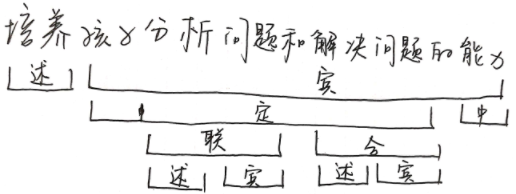 培养孩子分析问题和解决问题的能力
述 宾
定 中
联 合
述 宾 述 宾